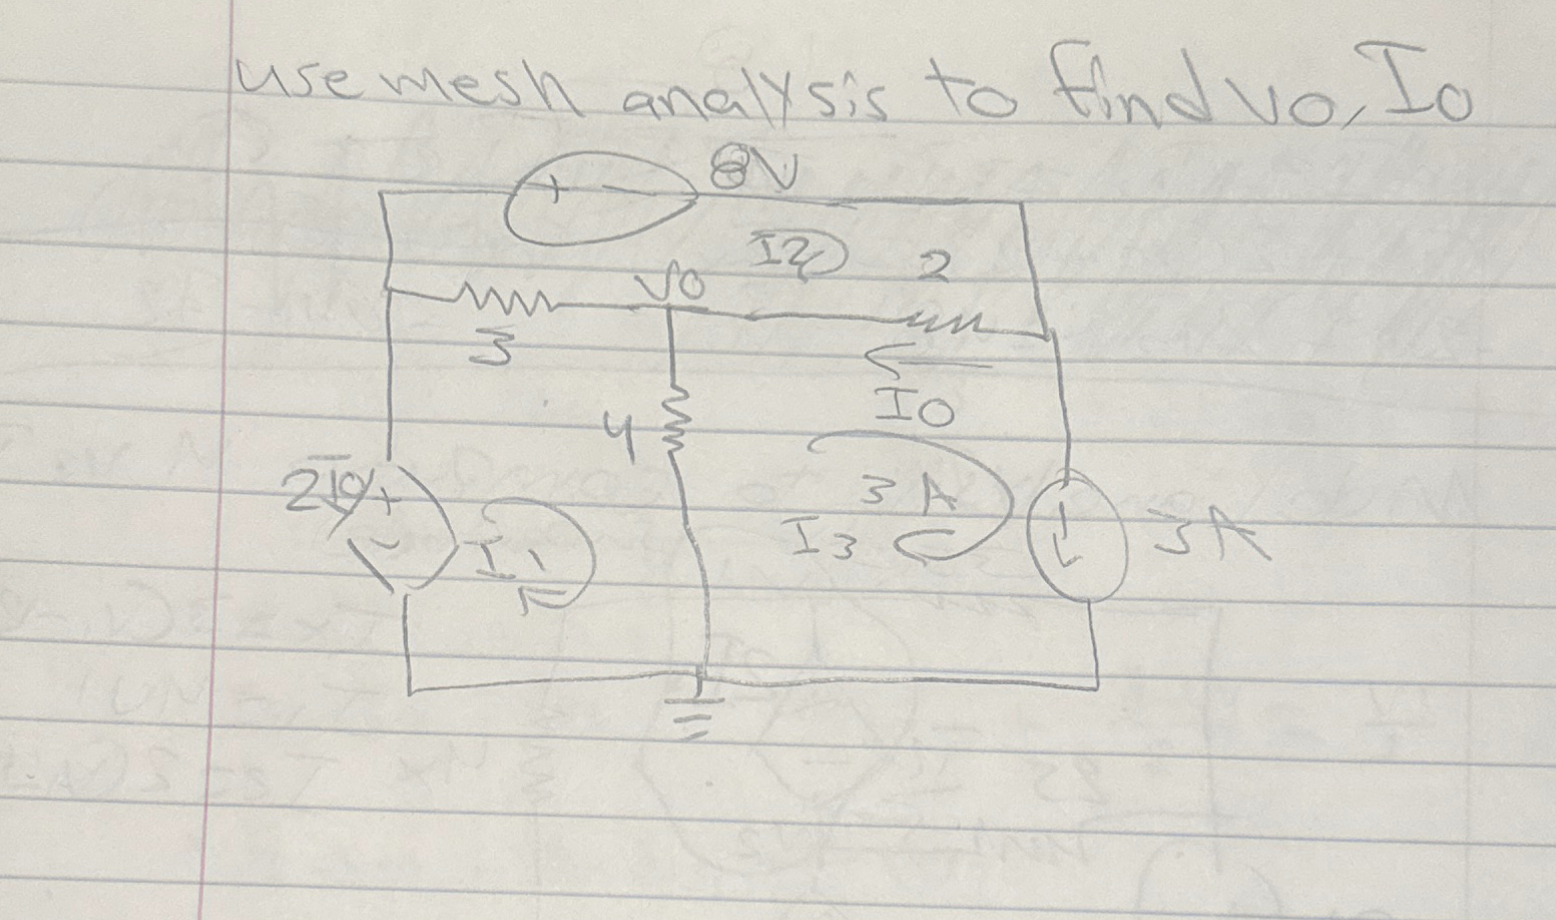 use mesh analysis to find vo, Io
8V
I2
2
Vo
3
Io
4
2Io
+
-
3 A
I3
3A
I1